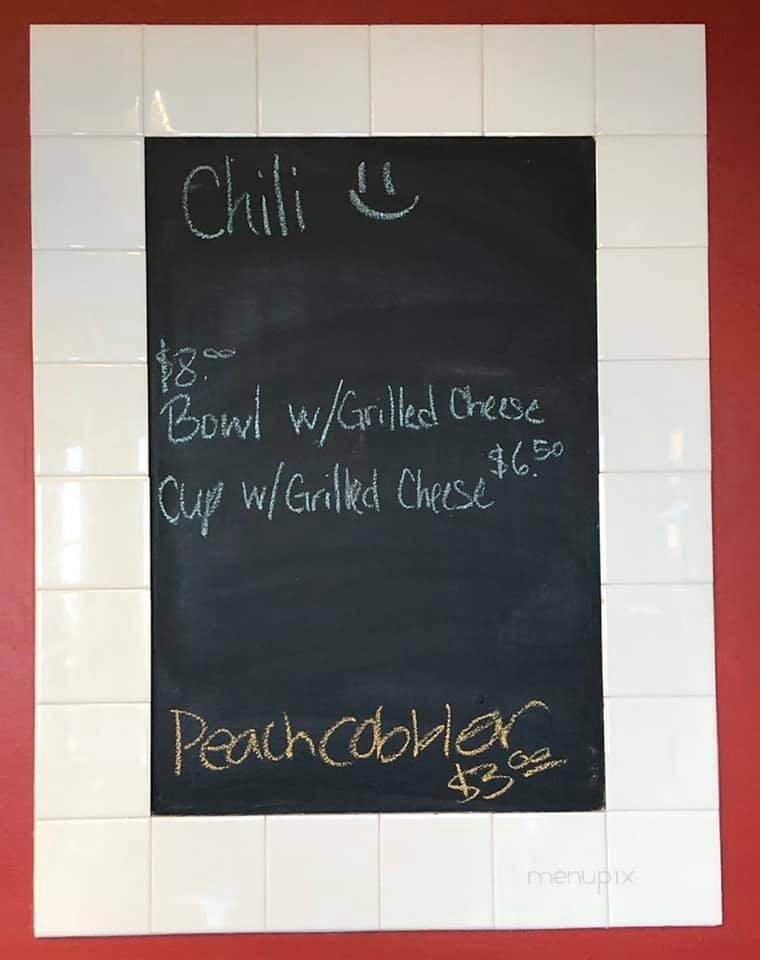 Chili
$8.00
Bowl w/Grilled Cheese
$6.50
Cup w/Grilled Cheese
Peach cobbler
$3.00
menupix